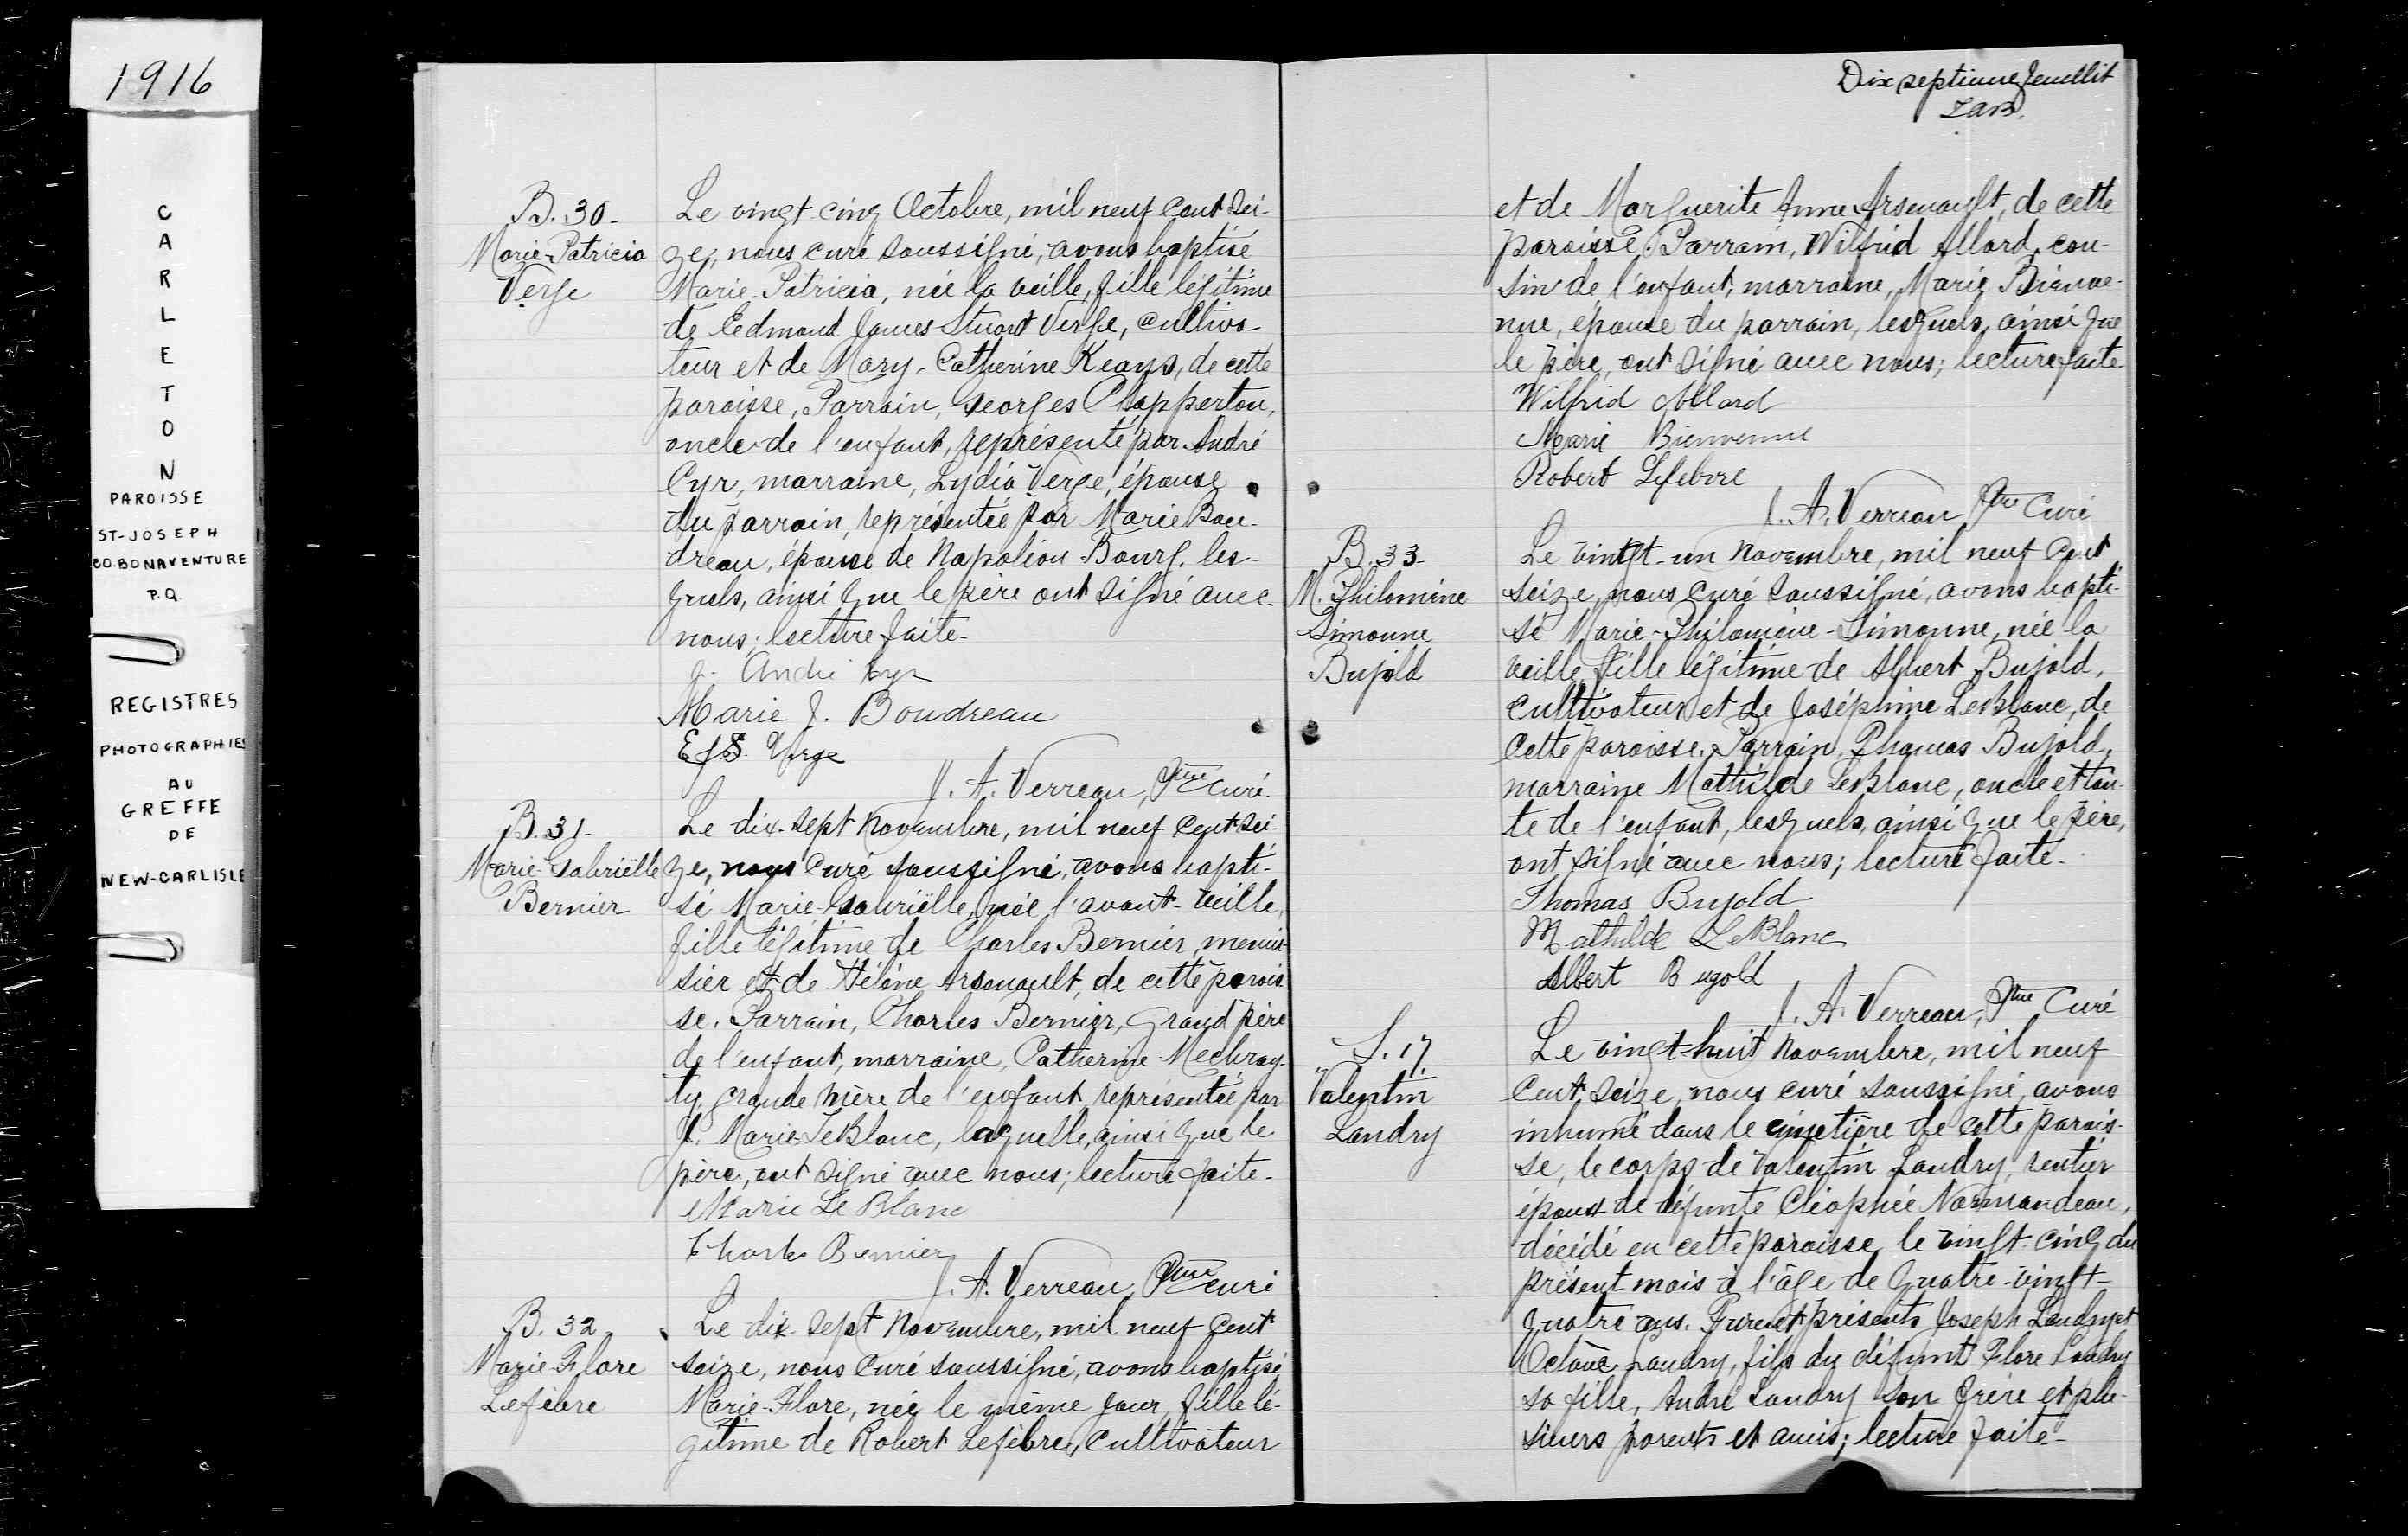 1916
CARLETON
PAROISSE
ST-JOSEPH
CO. BONAVENTURE
P.Q.
REGISTRES
PHOTOGRAPHIES
AU
GREFFE
DE
NEW-CARLISLE
B. 30-
Marie-Patricia
Verge
Le vingt-cinq Octobre, mil neuf cent sei-
ze, nous curé soussigné, avons baptisé
Marie-Patricia, née la veille, fille légitime
de Edmond James Stuart Verge, cultiva-
teur et de Mary-Catherine Keays, de cette
paroisse, Parrain, Georges Clapperton,
oncle de l'enfant, représenté par André
Cyr, marraine, Lydia Verge, épouse
du parrain, représentée par Marie Bou-
dreau, épouse de Napoléon Bourg, les-
quels, ainsi que le père ont signé avec
nous; lecture faite-
J. André Cyr
Marie J. Boudreau
E J S. Verge
J. A. Verreau, Ptre Curé.
B. 31-
Marie-Gabriëlle
Bernier
Le dix-sept Novembre, mil neuf cent sei-
ze, nous curé soussigné, avons bapti-
sé Marie-Gabriëlle, née l'avant-veille,
fille légitime de Charles Bernier, menui-
sier et de Hélène Arsenault, de cette parois-
se. Parrain, Charles Bernier, Grand père
de l'enfant, marraine, Catherine
ty, grande mère de l'enfant, représentée par
Marie LeBlanc, laquelle, ainsi que le
père, ont signé avec nous; lecture faite-
Marie Le Blanc
Charles Bernier
J. A. Verreau Ptre curé
B. 32
Marie-Flore
Lefebre
Le dix-sept Novembre, mil neuf cent
seize, nous curé soussigné, avons baptisé
Marie-Flore, née le même jour, fille lé-
gitime de Robert Lefèbre, Cultivateur
Dix septieme feuillet
et de Marguerite Anne Arsenault, de cette
paroisse. Parrain, Wilfrid Allard, cou-
sin de l'enfant, marraine, Marie Bienve-
nue, épouse du parrain, lesquels, ainsi que
le père, ont signé avec nous; lecture faite-
Wilfrid Allard
Marie Bienvenue
Robert Lefebvre
J. A. Verreau Ptre Curé
B. 33-
M. Philomène
Simonne
Bujold
Le vingt-un Novembre, mil neuf cent
seize, nous curé soussigné, avons bapti-
sé Marie-Philomène-Simonne, née la
veille, fille légitime de Albert Bujold,
cultivateur et de Joséphine LeBlanc, de
cette paroisse. Parrain, Thomas Bujold,
marraine Mathilde LeBlanc, oncle et tan-
te de l'enfant, lesquels, ainsi que le père,
ont signé avec nous; lecture faite-
Thomas Bujold
Mathilde LeBlanc
Albert Bugold
J. A. Verreau, Ptre Curé
S. 17
Valentin
Landry
Le vingt-huit Novembre, mil neuf
cent seize, nous curé soussigné, avons
inhumé dans le cimetière de cette parois-
se, le corps de Valentin Landry, rentier
époux de défunte Cléophée Normandeau,
décédé en cette paroisse, le vingt-cinq du
présent mois à l'âge de quatre-vingt-
quatre ans. Furent présents Joseph Landry et
Octave Landry, fils du défunt Flore Landry
sa fille, André Landry son frère et plu-
sieurs parents et amis; lecture faite-